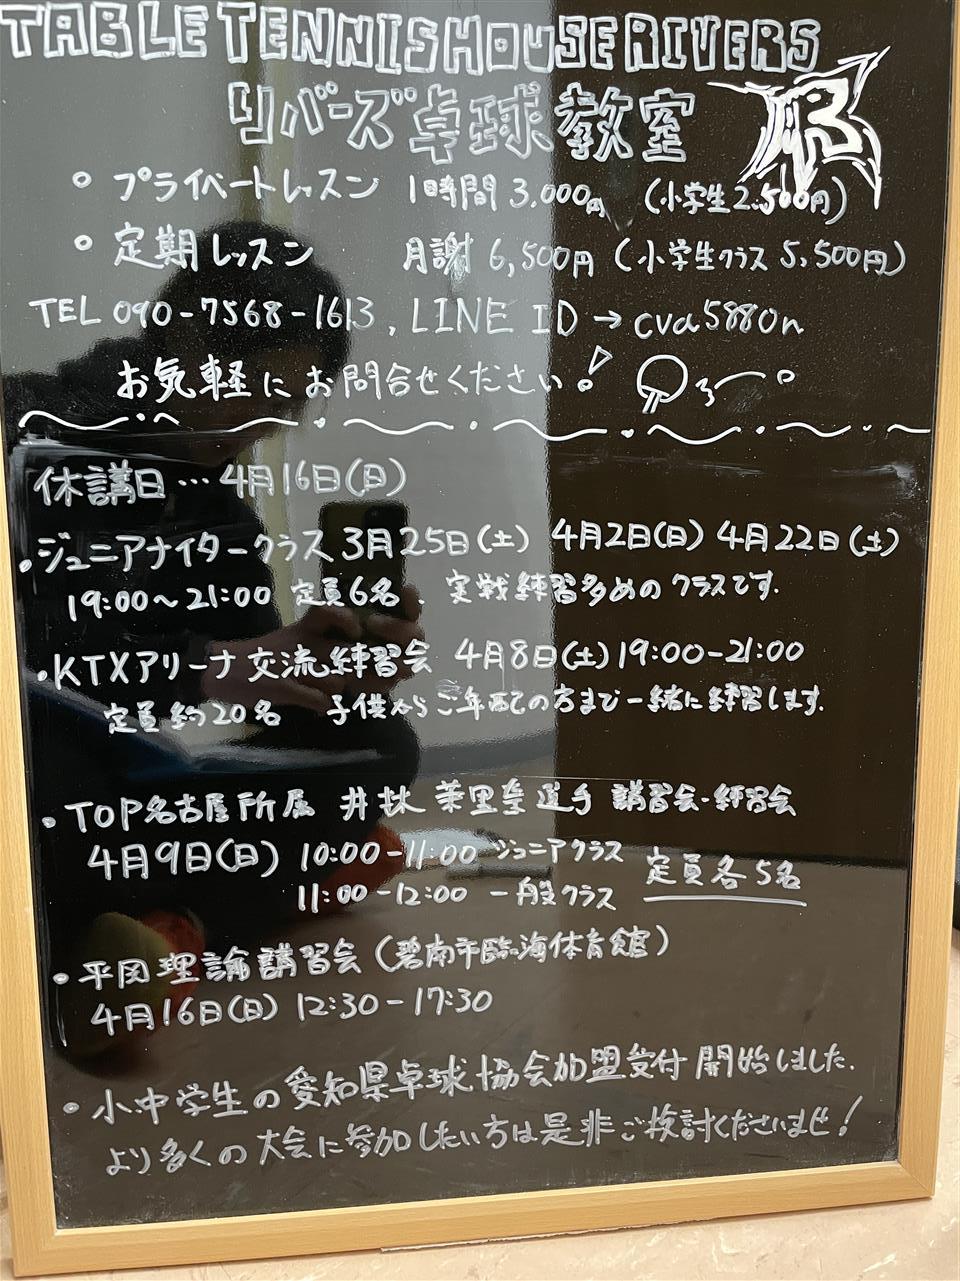 TABLE TENNIS HOUSE RIVERS
リバーズ卓球教室
R
・プライベートレッスン 1時間 3.000円 (小学生2.500円)
・定期レッスン 月謝 6,500円 (小学生クラス 5,500円)
TEL 090-7568-1613, LINE ID→cva5880n
お気軽にお問合せください!
休講日…4月16日(日)
・ジュニアナイタークラス 3月25日(土) 4月2日(日) 4月22日(土)
19:00〜21:00 定員6名. 実戦練習多めのクラスです.
・KTXアリーナ交流練習会 4月8日(土)19:00-21:00
定員約20名 子供からご年配の方まで一緒に練習します.
・TOP名古屋所属 井 茉里奈選手 講習会・練習会
4月9日(日) 10:00-11:00 ジュニアクラス
11:00-12:00 一般クラス
定員各5名
・平岡理論講習会(碧南市臨海体育館)
4月16日(日) 12:30-17:30
・小中学生の愛知県卓球協会加盟受付開始しました.
より多くの大会に参加したい方は是非ご検討くださいませ!